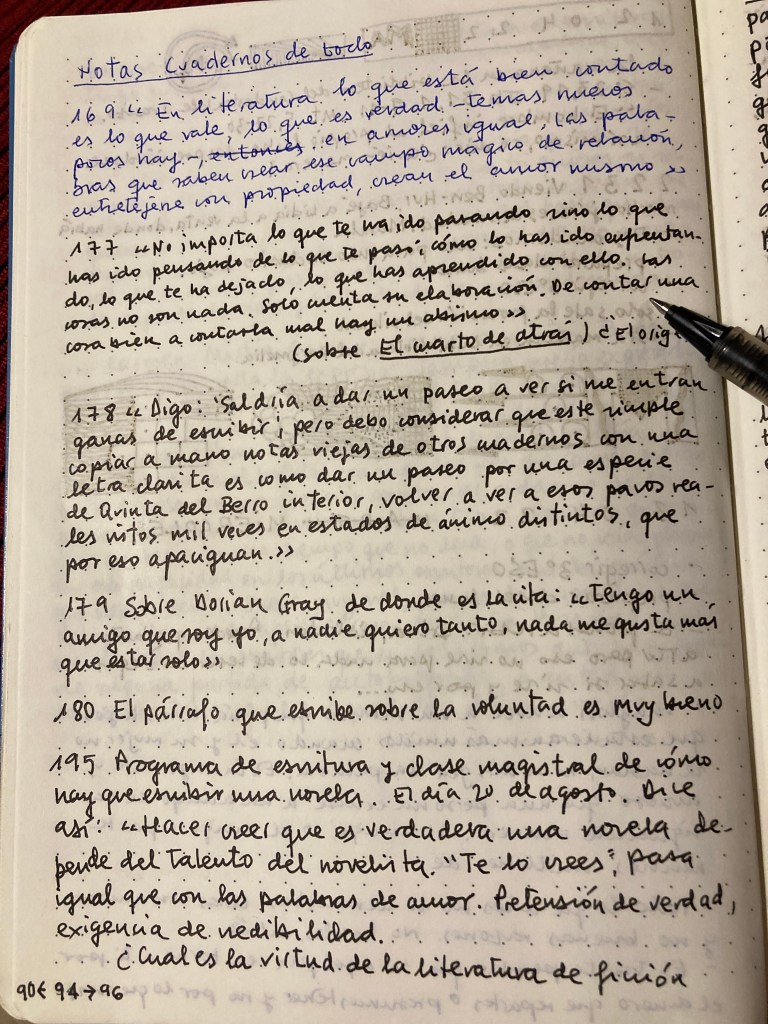 Notas Cuadernos de todo
169 "En literatura lo que está bien contado
es lo que vale, lo que es verdad - temas nuevos
pocos hay -, entonces en amores igual, las pala-
bras que saben crear ese campo mágico de relación,
entretejerse con propiedad, crean el amor mismo»
177 «No importa lo que te ha ido pasando sino lo que
has ido pensando de lo que te pasó, cómo lo has ido enfrentan-
do, lo que te ha dejado, lo que has aprendido con ello. Las
cosas no son nada. Solo cuenta su elaboración. De contar una
cosa bien a contarla mal hay un abismo»
(sobre El cuarto de atrás) ¿El orig
178 «Digo: 'Saldría a dar un paseo a ver si me entran
ganas de escribir', pero debo considerar que este simple
copiar a mano notas viejas de otros cuadernos con una
letra clarita es como dar un paseo por una especie
de Quinta del Berro interior, volver a ver a esos pavos rea-
les vistos mil veces en estados de ánimo distintos, que
por eso apaciguan.»
179 Sobre Dorian Gray de donde es la cita: «Tengo un
amigo que soy yo, a nadie quiero tanto, nada me gusta más
que estar solo»
180 El párrafo que escribe sobre la voluntad es muy bueno
195 Programa de escritura y clase magistral de cómo
hay que escribir una novela. El día 20 de agosto. Dice
así: «Hacer creer que es verdadera una novela de-
pende del talento del novelista. "Te lo crees", pasa
igual que con las palabras de amor. Pretensión de verdad,
exigencia de credibilidad.
¿Cual es la virtud de la literatura de ficción
90€ 94→96